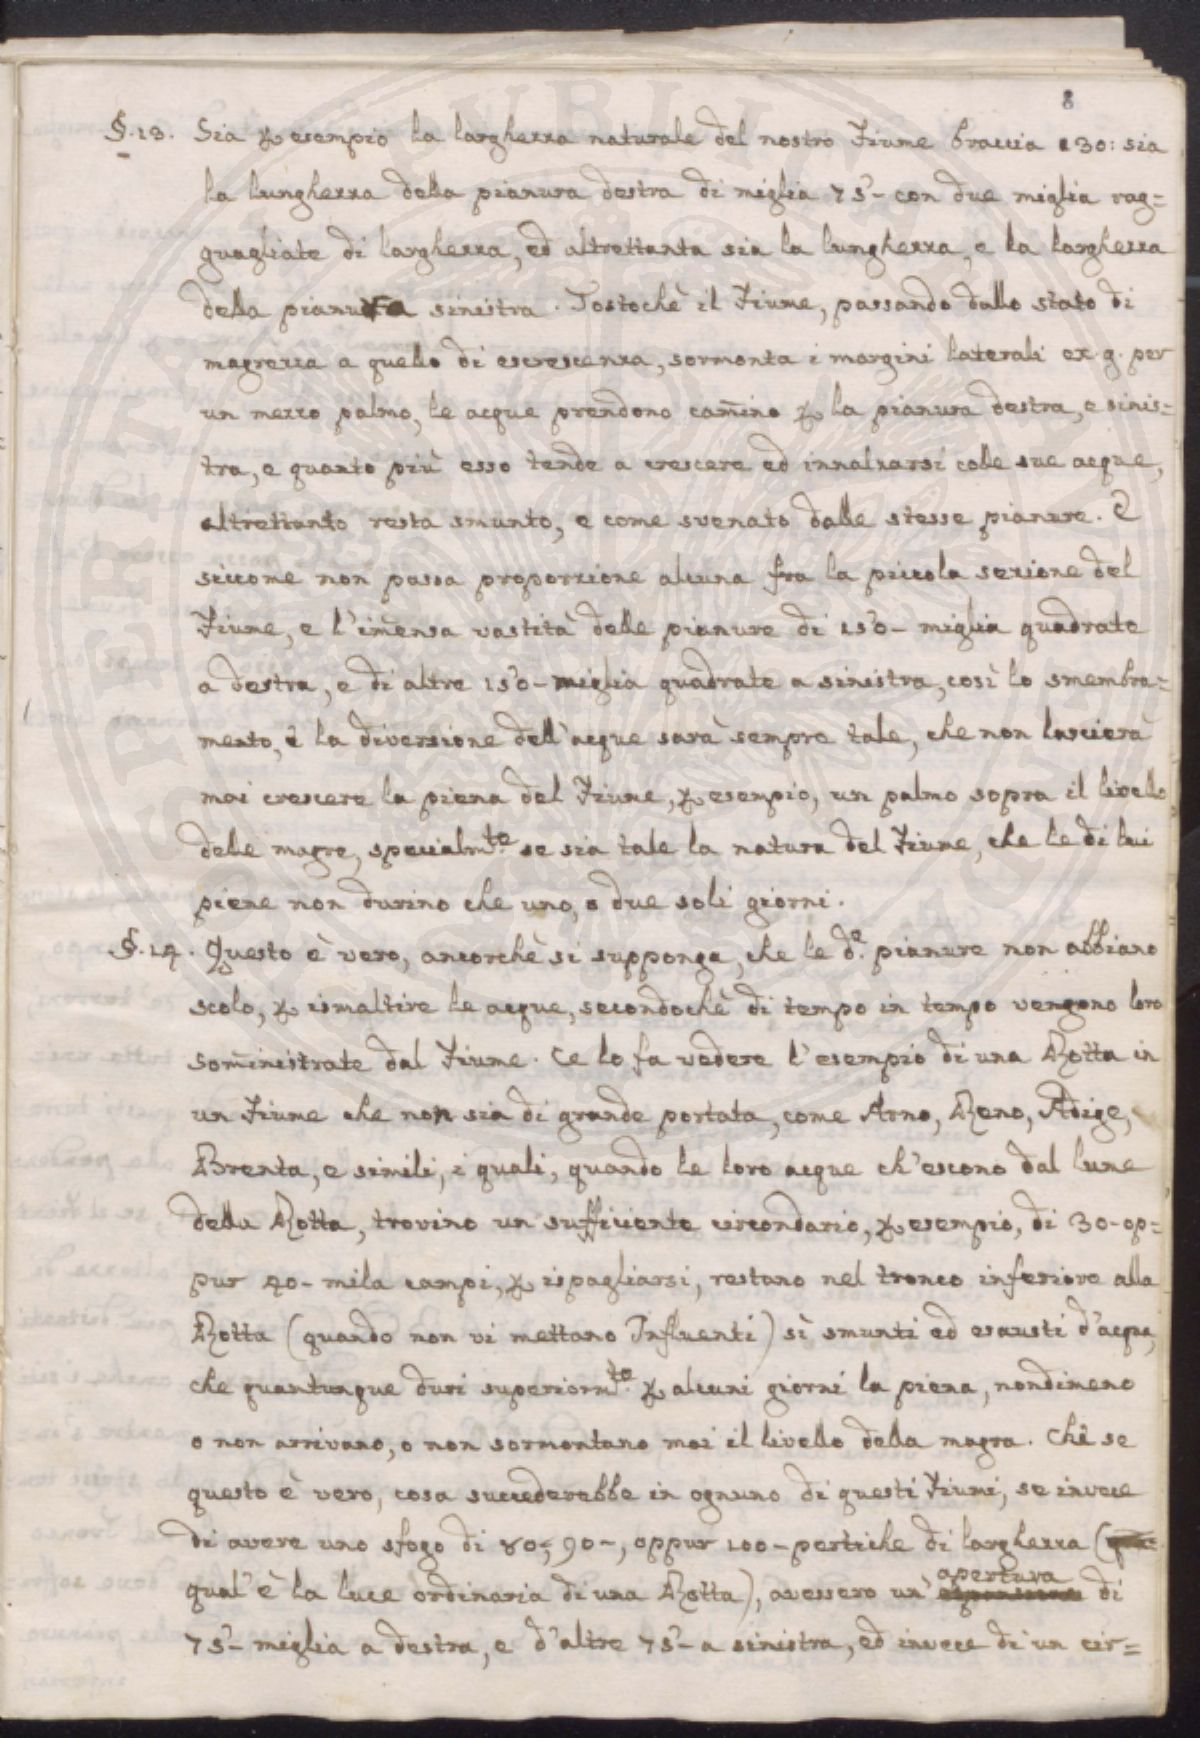 8
§.13. Sia per esempio la larghezza naturale del nostro Fiume braccia 130: sia
la lunghezza della pianura destra di miglia 75- con due miglia rag=
guagliate di larghezza, ed altrettanta sia la lunghezza, e la larghezza
della pianura sinistra. Tostochè il Fiume, passando dallo stato di
magrezza a quello di escrescenza, sormonta i margini laterali ex.g. per
un mezzo palmo, le acque prendono cam̄ino per la pianura destra, e sinis=
tra, e quanto più esso tende a crescere ed innalzarsi colle sue acque,
altrettanto resta smunto, e come svenato dalle stesse pianure. E
siccome non passa proporzione alcuna fra la piccola sezione del
Fiume, e l'im̄ensa vastità delle pianure di 150- miglia quadrate
a destra, e di altre 150- miglia quadrate a sinistra, così lo smembra=
mento, e la diversione dell'acque sarà sempre tale, che non lascierà
mai crescere la piena del Fiume, per esempio, un palmo sopra il livello
delle magre, specialmte. se sia tale la natura del Fiume, che le di lui
piene non durino che uno, o due soli giorni.
§.14. Questo è vero, ancorchè si supponga, che le de. pianure non abbiano
scolo, per ismaltire le acque, secondochè di tempo in tempo vengono loro
som̄inistrate dal Fiume. Ce lo fa vedere l'esempio di una Rotta in
un Fiume che non sia di grande portata, come Arno, Reno, Adige,
Brenta, e simili, i quali, quando le loro acque ch'escono dal lume
della Rotta, trovino un sufficiente circondario, per esempio, di 30- op=
pur 40- mila campi, per ispagliarsi, restano nel tronco inferiore alla
Rotta (quando non vi mettano Influenti) sì smunti ed esausti d'acqua,
che quantunque duri superiormte. per alcuni giorni la piena, nondimeno
o non arrivano, o non sormontano mai il livello della magra. Chè se
questo è vero, cosa succederebbe in ognuno di questi Fiumi, se invece
di avere uno sfogo di 80-, 90-, oppur 100- pertiche di larghezza (
qual'è la luce ordinaria di una Rotta), avessero un' apertura di
75- miglia a destra, e d'altre 75- a sinistra, ed invece di un cir=